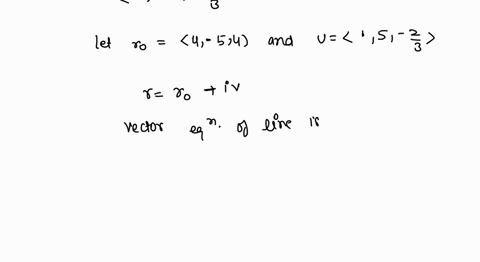 3
let r₀ = <4,-5,4) and v = < 1, 5, -2/3 >
r = r₀ + iv
vector eqⁿ. of line is